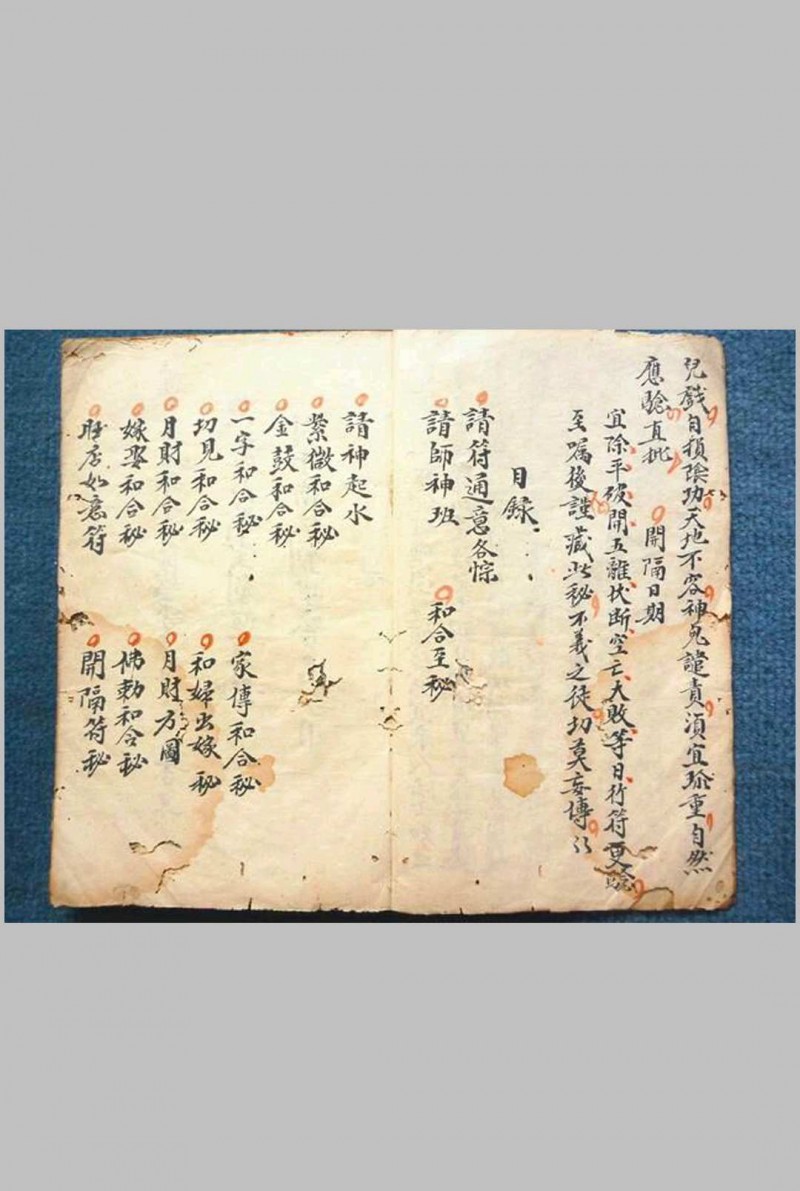 兒戲自損陰功天地不容神鬼譴責須宜珍重自然
應驗直批 開隔日期
宜除平破開五離伏断空亡大敗等日行符更驗
至嘱後謹藏此秘不義之徒切莫妄傳
目錄
請符通意各悰
請師神班 和合至秘
請神起水
紫微和合秘
金鼓和合秘
一字和合秘 家傳和合秘
切見和合秘 和婦出嫁秘
月財和合秘 月財方圓
嫁娶和合秘 佛勅和合秘
如意符 開隔符秘